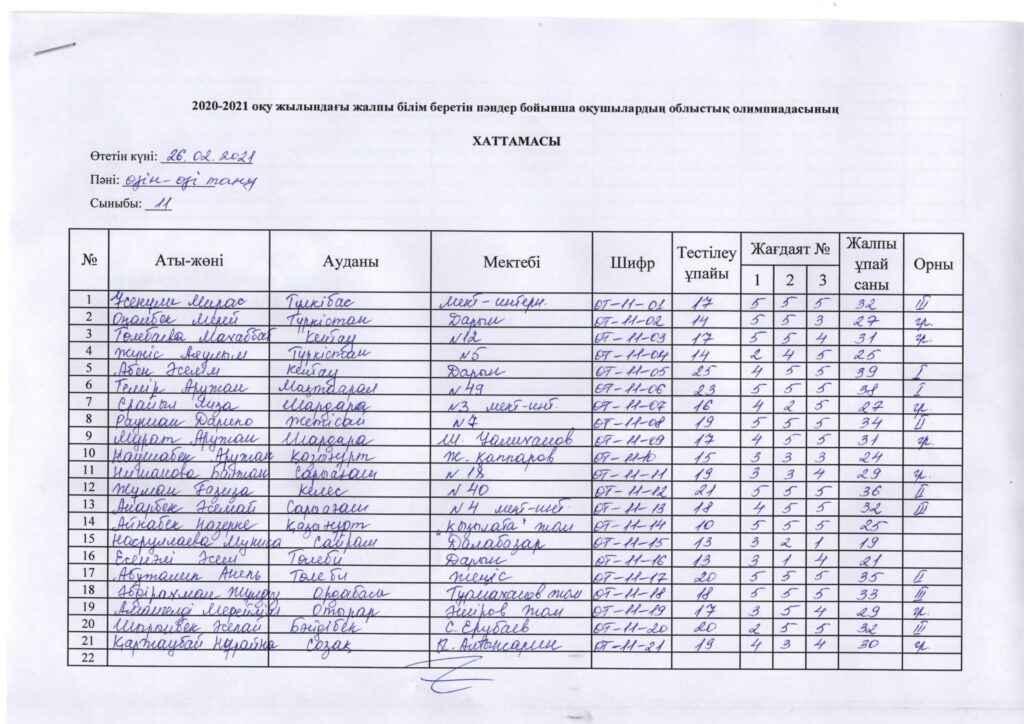 2020-2021 оқу жылындағы жалпы білім беретін пәндер бойынша оқушылардың облыстық олимпиадасының
ХАТТАМАСЫ
Өтетін күні: 26.02.2021
Пәні: өзін-өзі тану
Сыныбы: 11
№ Аты-жөні Ауданы Мектебі Шифр Тестілеу ұпайы Жағдаят № 1 2 3 Жалпы ұпай саны Орны
1 Мирас Түлкібас мект-интерн. ОТ-11-01 17 5 5 5 32 III
2 Мерей Түркістан Дарын ОТ-11-02 14 5 5 3 27 гр.
3 Төлебаева Махаббат Кентау №12 ОТ-11-03 17 5 5 4 31 гр.
4 Жүніс Аяулым Түркістан №5 ОТ-11-04 14 2 4 5 25
5 Абен Әселім Кентау Дарын ОТ-11-05 25 4 5 5 39 I
6 Темір Аружан Мақтарал №49 ОТ-11-06 23 5 5 5 38 I
7 Шардара №3 мект-инт. ОТ-11-07 16 4 2 5 27 гр.
8 Раушан Жетісай №7 ОТ-11-08 19 5 5 5 34 II
9 Мұрат Аружан Шардара Ш. Уалиханов ОТ-11-09 17 4 5 5 31 гр.
10 Аружан Қазығұрт Ж. Қаппаров ОТ-11-10 15 3 3 3 24
11 Нишанова Ботжан Сарыағаш №18 ОТ-11-11 19 3 3 4 29 гр.
12 Жұман Ғазиза Келес №40 ОТ-11-12 21 5 5 5 36 II
13 Анарбек Жемай Сарыағаш №4 мект-инт ОТ-11-13 18 4 5 5 32 III
14 Айнабек Назерке Қазығұрт "Қызылата" жом ОТ-11-14 10 5 5 5 25
15 Насруллаева Муниса Сайрам Далабазар ОТ-11-15 13 3 2 1 19
16 Әсем Төлеби Дарын ОТ-11-16 13 3 1 4 21
17 Абуталип Анель Төлеби Жеңіс ОТ-11-17 20 5 5 5 35 II
18 Әбдірахман Ордабасы Тұрмаханов жом ОТ-11-18 18 5 5 5 33 III
19 Отырар Әміров жом ОТ-11-19 17 3 5 4 29 гр.
20 Бәйдібек С. Ерубаев ОТ-11-20 20 2 5 5 32 III
21 Қаржаубай Нұрайна Созақ Ы. Алтынсарин ОТ-11-21 19 4 3 4 30 гр.
22